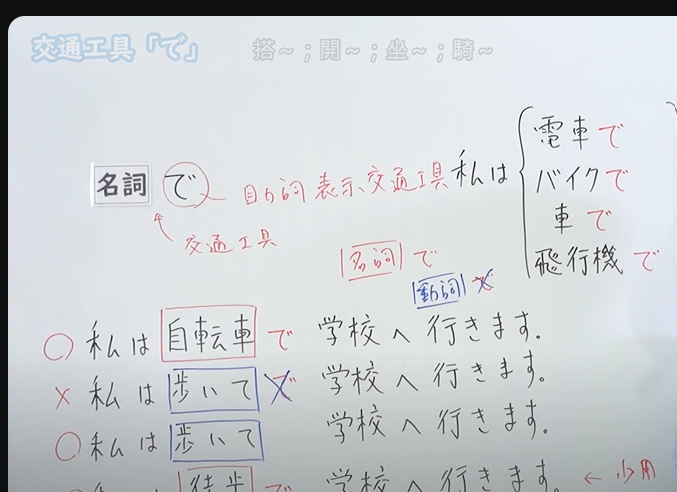 交通工具「で」 搭~;開~;坐~;騎~
電車で
名詞 で 助詞 表示交通工具 私は バイクで
交通工具 車で
名詞 で 飛行機で
動詞 で
○ 私は 自転車 で 学校へ行きます。
× 私は 歩いて で 学校へ行きます。
○ 私は 歩いて 学校へ行きます。
徒歩 で 学校へ行きます。 ← 少用